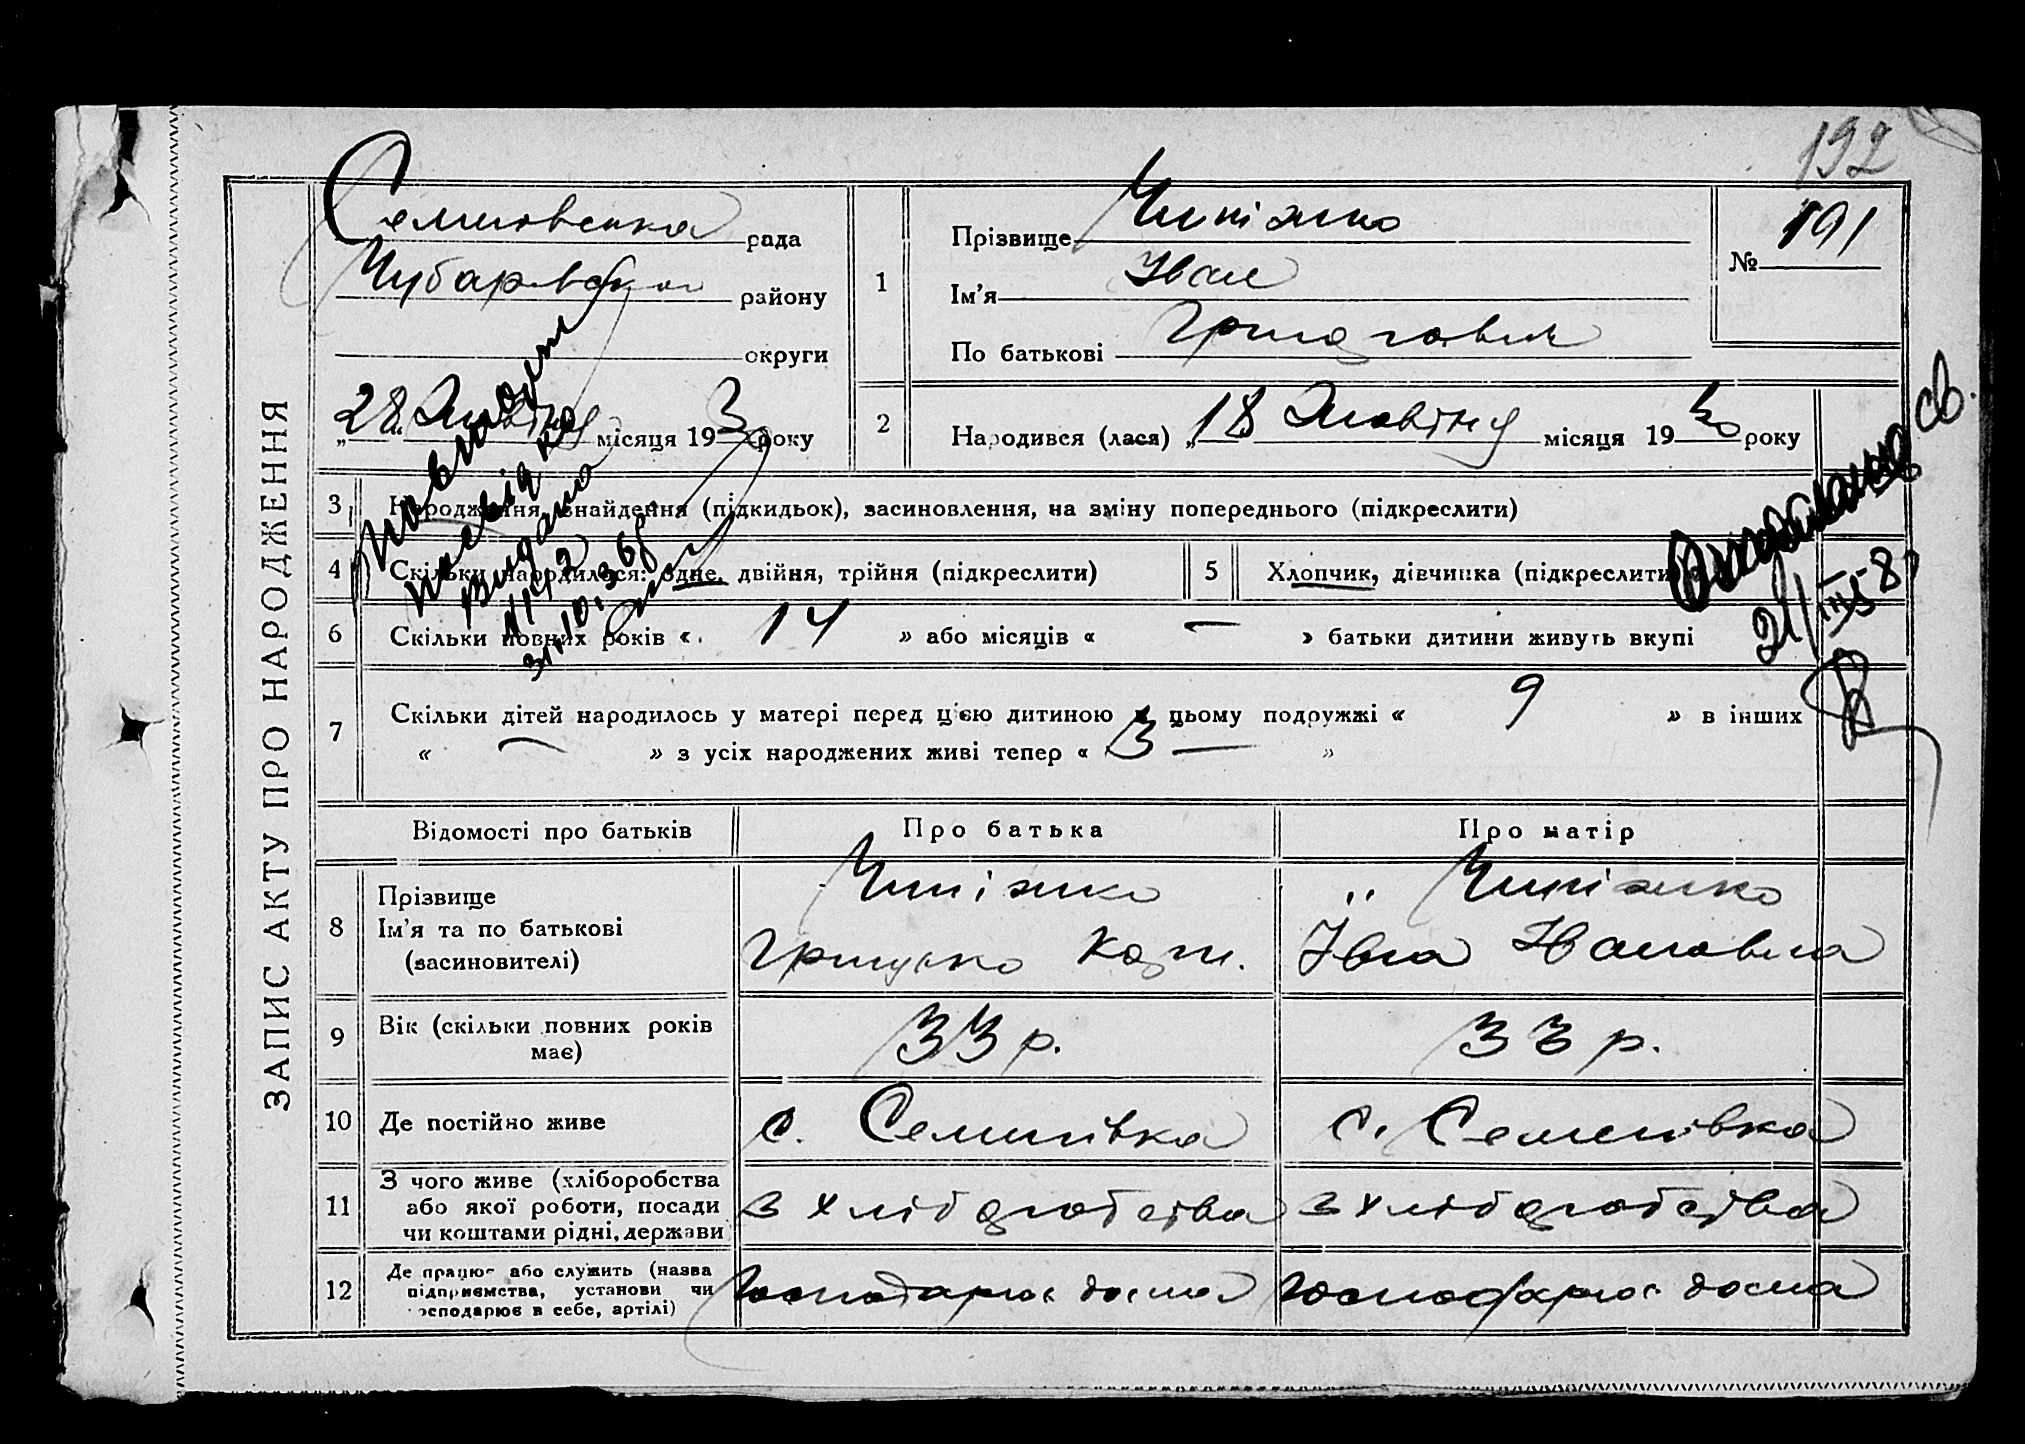 192
ЗАПИС АКТУ ПРО НАРОДЖЕННЯ
Семеновська рада
Чубарівськ району
округи
„28“ Жовтня місяця 193 року
1
Прізвище Чипіжко
Ім'я Іван
По батькові
№ 191
2
Народився (лася) „18 Жовтня місяця 1930 року
3 Народження, знайдення (підкидьок), засиновлення, на зміну попереднього (підкреслити)
4 Скільки народилося: одне, двійня, трійня (підкреслити)
5 Хлопчик, дівчинка (підкреслити)
6 Скільки повних років « 14 » або місяців « — » батьки дитини живуть вкупі
7 Скільки дітей народилось у матері перед цією дитиною в цьому подружжі « 9 » в інших
« — » з усіх народжених живі тепер « 3 — »
Повторно
видано
31.10.368
21/III-8
Відомості про батьків Про батька Про матір
8 Прізвище Ім'я та по батькові (засиновителі)
Чипіжко
Грицько
Чипіжко
Ївга Івановна
9 Вік (скільки повних років має) 33 р. 33 р.
10 Де постійно живе с. Семенівка с. Семенівка
11 З чого живе (хліборобства або якої роботи, посади чи коштами рідні, держави
з хліборобства з хліборобства
12 Де працює або служить (назва підприємства, установи чи господарює в себе, артілі)
господарює дома господарює дома